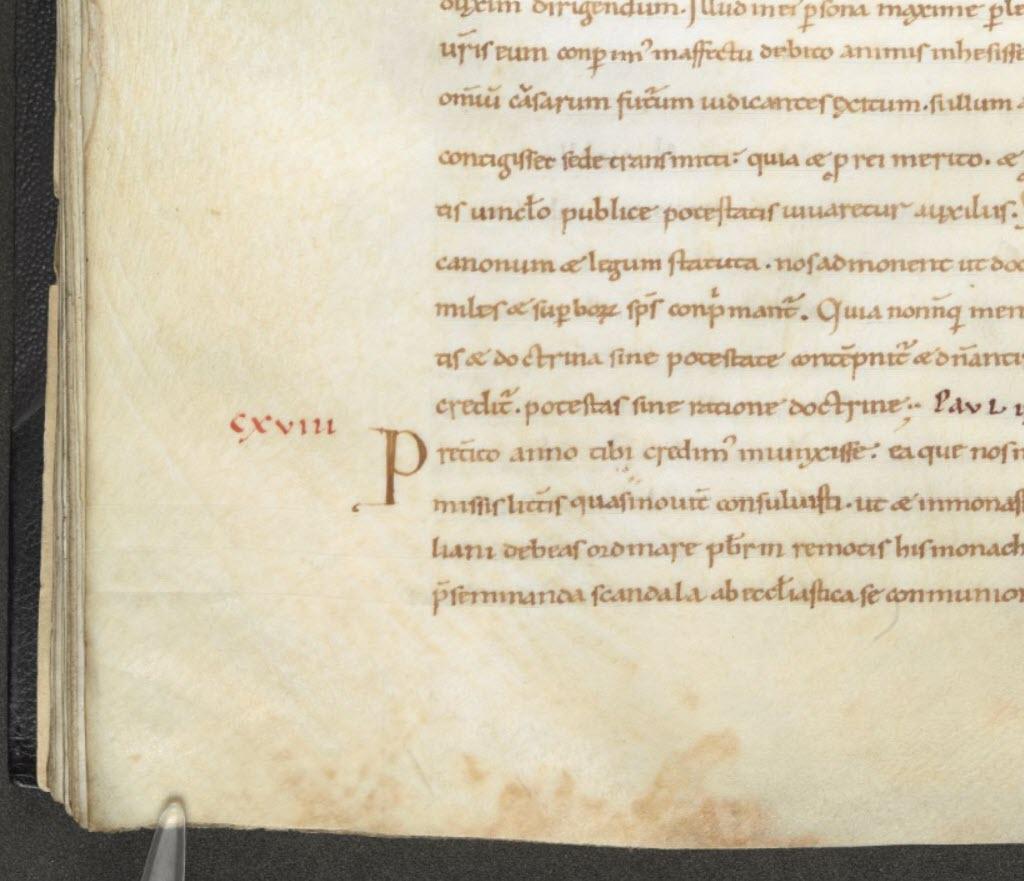 duxim dirigendum. Illud mei psona maxime
uŕis eum conp̄mim' inaffectu debito animis inhesisse
om̄iū cāsarum futūrum iudicantes exitum. sullum
contigisset sede transmitti: quia & p rei merito. &
tis uinclo publice potestatis iuuaretur auxiliis.
canonum & legum statuta. nosadmonent ut
miles & supbor sp̄s conp̄mant̄. Quia nonnq
tis & doctrina sine potestate contēpnit̄ &
credit̄. potestas sine ratione doctrine.
cxviii
Preterito anno tibi credim' iniunxisse: eaque
missis litt̄is quasinouit̄ consuluisti. ut & in
liani debeas ordinare pb̄rm remotis hismonach
p̄seminanda scandala abeccl̄iastica se conmunion